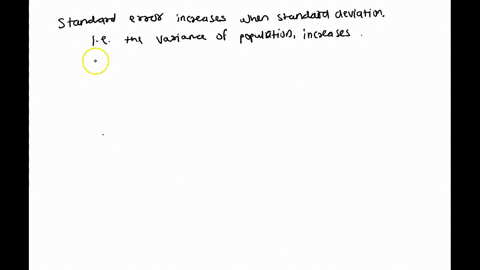 Standard error increases when standard deviation.
i.e. the variance of population, increases.